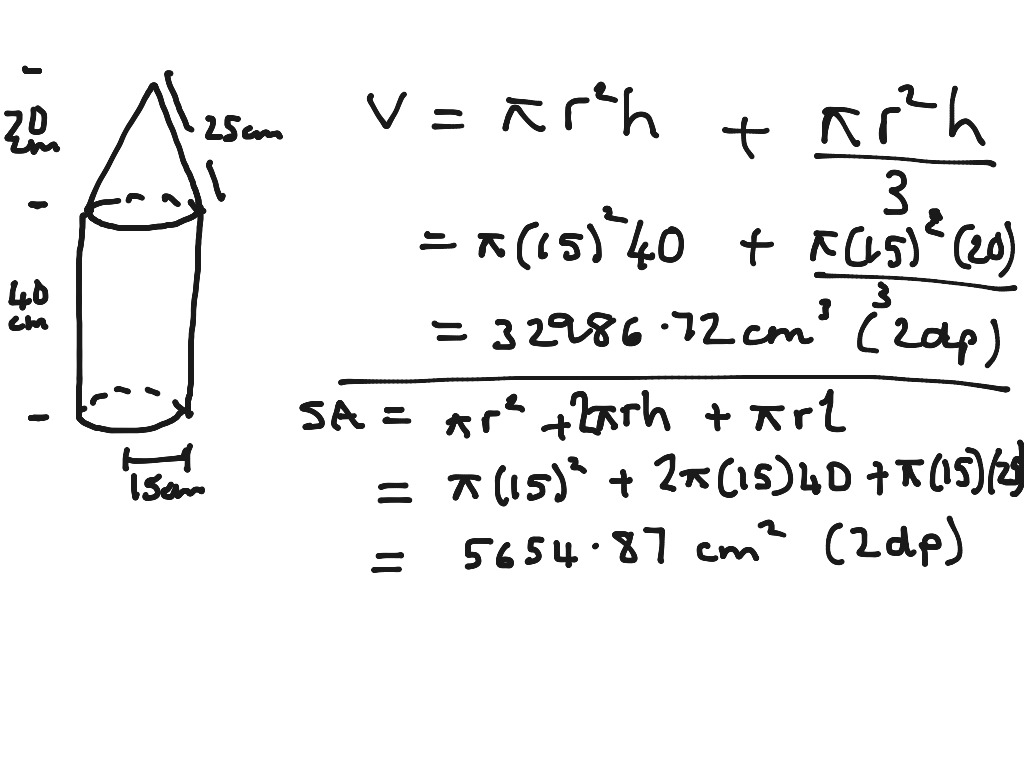 20
cm
25cm
40
cm
15cm
V = πr²h + πr²h
3
= π(15)²40 + π(15)²(20)
3
= 32986.72 cm³ (2dp)
SA = πr² + 2πrh + πrl
= π(15)² + 2π(15)40 + π(15)(25)
= 5654.87 cm² (2dp)